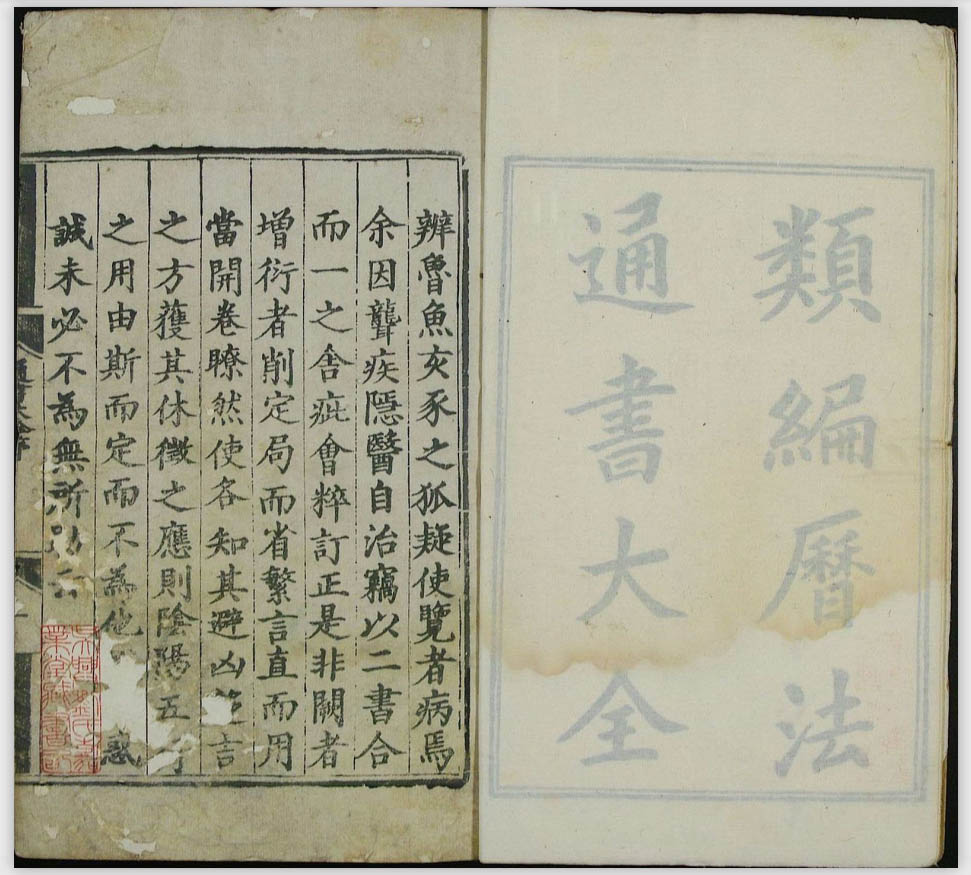 類編曆法
通書大全
辨魯魚亥豕之狐疑使覽者病焉
余因聾疾隱醫自治竊以二書合
而一之舎疵會粹訂正是非闕者
增衍者削定局而省繁言直而用
當開卷瞭然使各知其避凶
言
之方蒦其休徵之應則陰陽五行
之用由斯而定而不為他
惑
誠未必不為無所助云